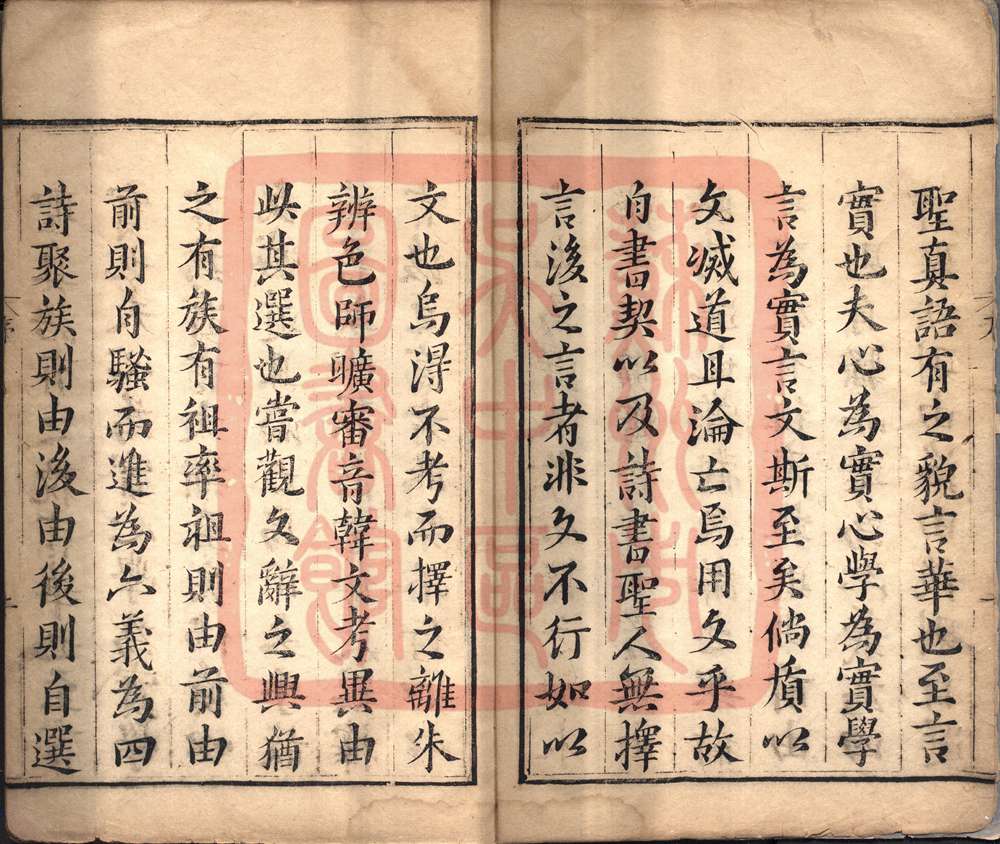 聖真語有之貌言華也至言
實也夫心為實心學為實學
言為實言文斯至矣倘質以
文滅道且淪亡焉用文乎故
自書契以及詩書聖人無擇
言後之言者非文不行如以
文也烏得不考而擇之離朱
辨色師曠審音韓文考異由
此其選也嘗觀文辭之興猶
之有族有祖率祖則由前由
前則自騷而進為六義為四
詩聚族則由後由後則自選
蘇州市
吳中區
圖書館
序
九